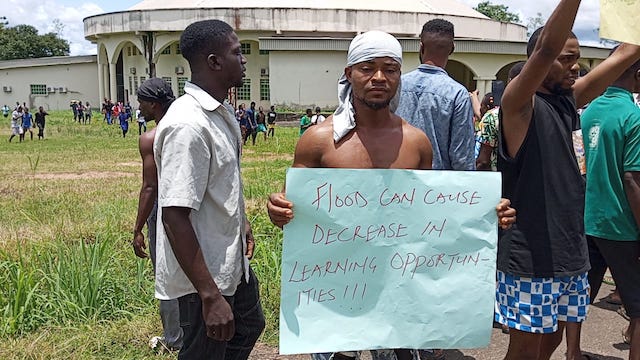 FLOOD CAN CAUSE
DECREASE IN
LEARNING OPPORTUN-
ITIES!!!